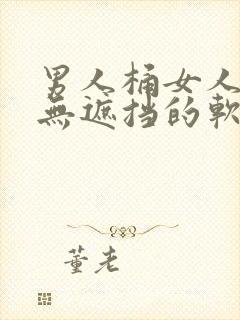 男人桶女人
無遮挡的軟
董老